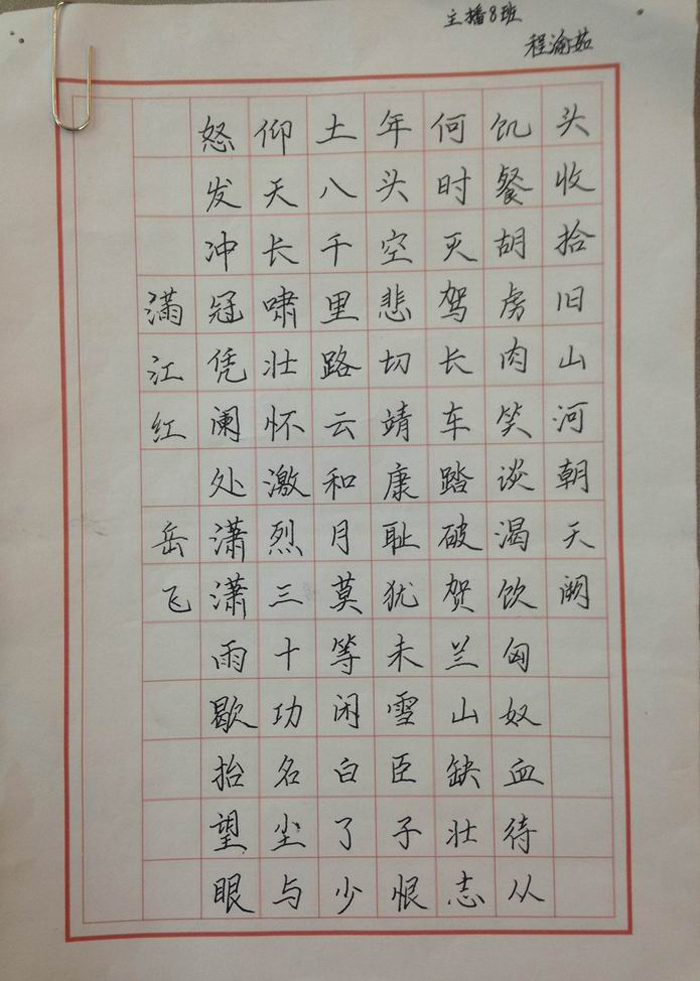 主播8班
程渝茹
满江红 岳飞
怒发冲冠凭阑处潇潇雨歇抬望眼
仰天长啸壮怀激烈三十功名尘与
土八千里路云和月莫等闲白了少
年头空悲切靖康耻犹未雪臣子恨
何时灭驾长车踏破贺兰山缺壮志
饥餐胡虏肉笑谈渴饮匈奴血待从
头收拾旧山河朝天阙